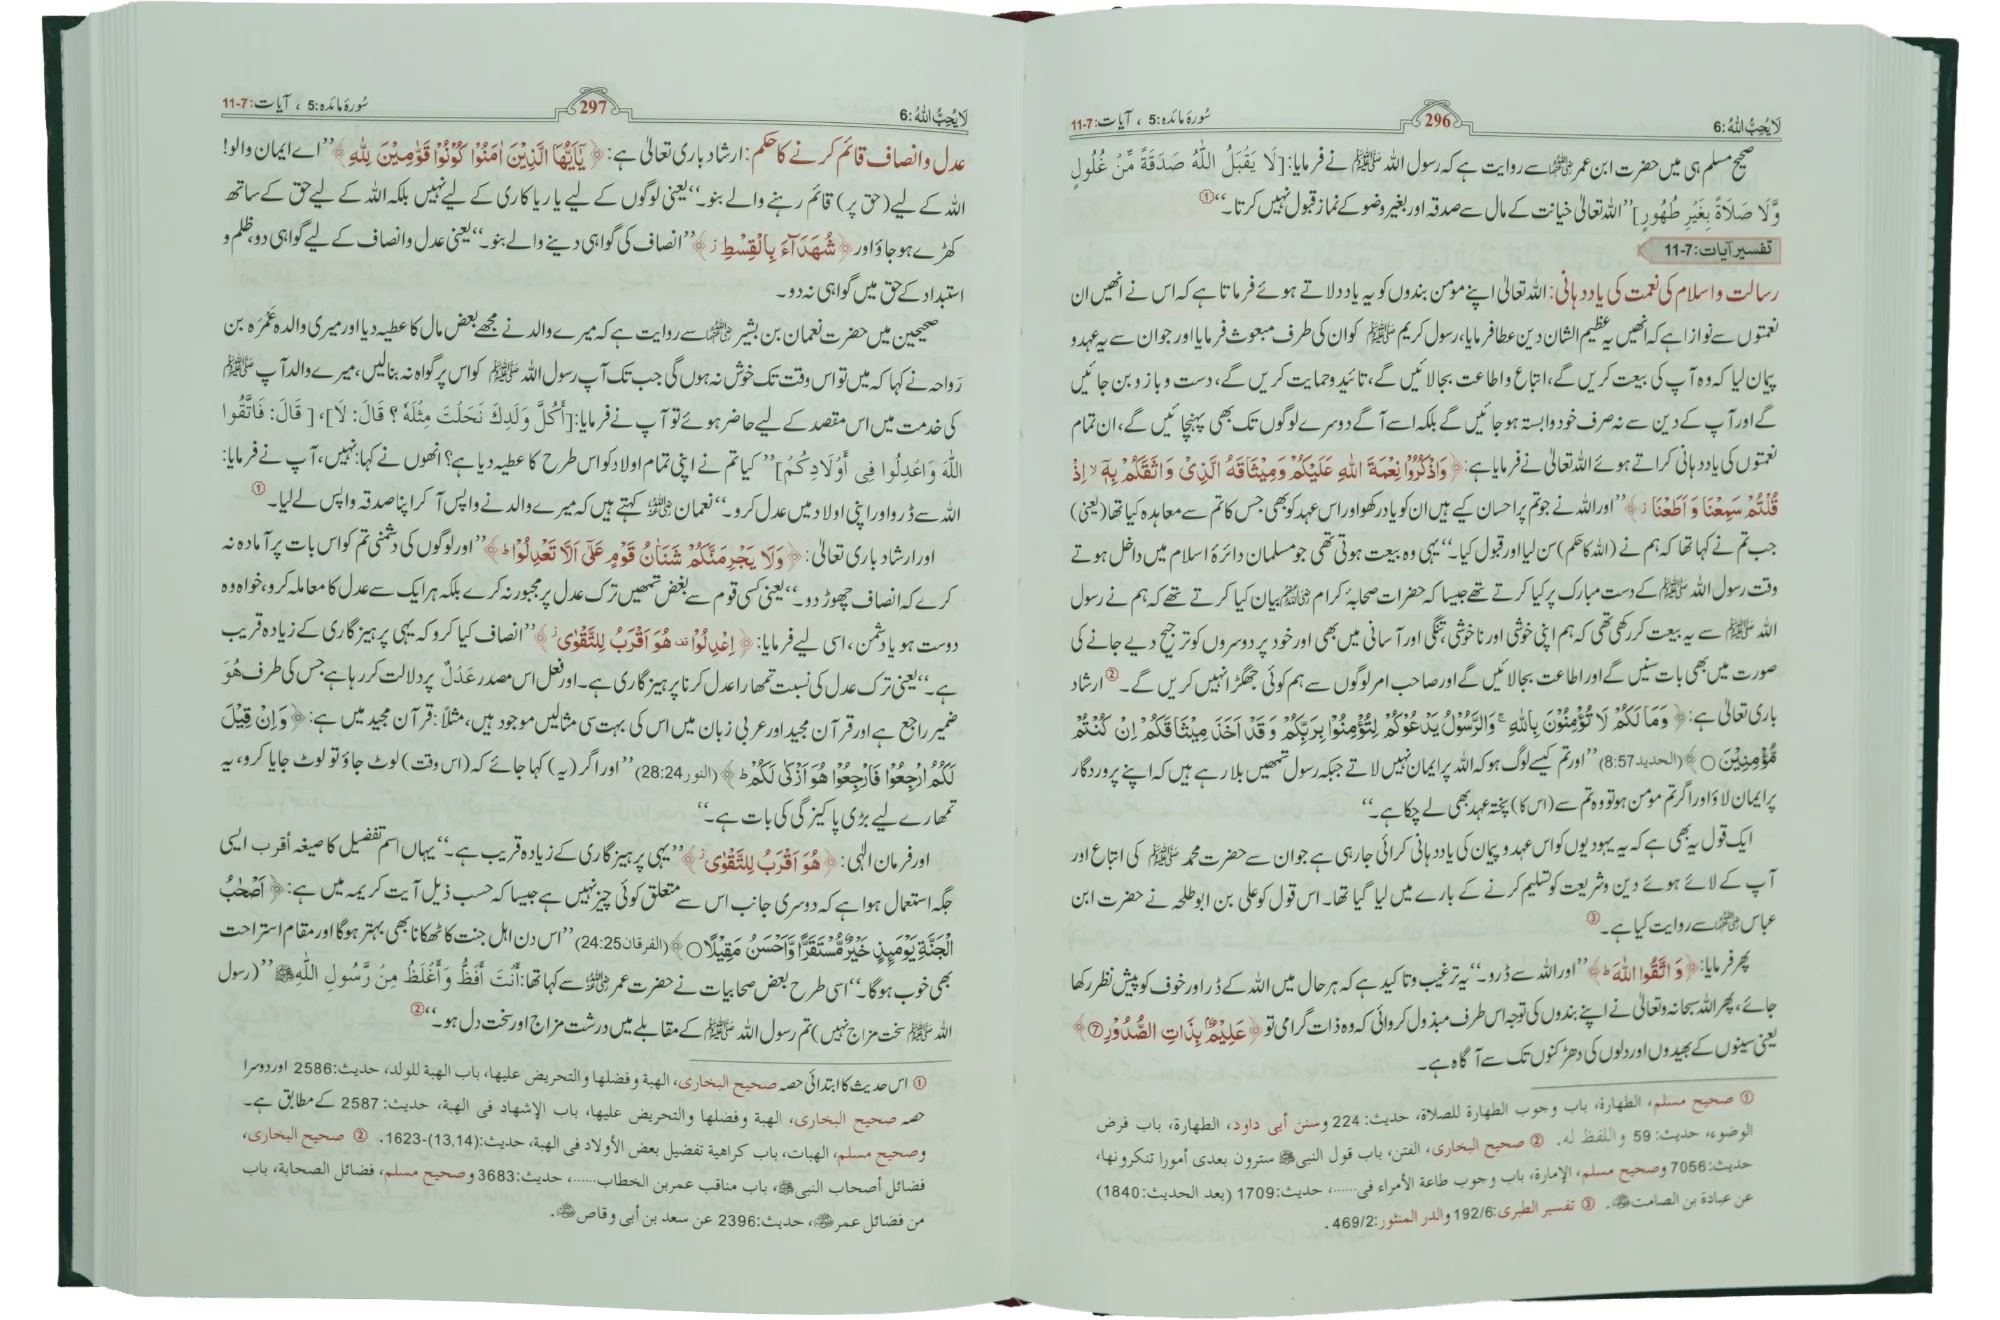 لَا يُحِبُّ اللّٰهُ:6
296
سُورۂ مائدہ:5 ، آیات:7-11
صحیح مسلم ہی میں حضرت ابن عمر رضی اللہ عنہما سے روایت ہے کہ رسول اللہ ﷺ نے فرمایا:[لَا يَقْبَلُ اللّٰهُ صَدَقَةً مِّنْ غُلُولٍ
وَّلَا صَلَاةً بِغَيْرِ طُهُورٍ]’’اللہ تعالیٰ خیانت کے مال سے صدقہ اور بغیر وضو کے نماز قبول نہیں کرتا۔‘‘①
تفسیر آیات:7-11
رسالت و اسلام کی نعمت کی یاد دہانی: اللہ تعالیٰ اپنے مومن بندوں کو یہ یاد دلاتے ہوئے فرماتا ہے کہ اس نے انھیں ان
نعمتوں سے نوازا ہے کہ انھیں یہ عظیم الشان دین عطا فرمایا، رسول کریم ﷺ کو ان کی طرف مبعوث فرمایا اور جو ان سے یہ عہد و
پیمان لیا کہ وہ آپ کی بیعت کریں گے، اتباع و اطاعت بجا لائیں گے، تائید و حمایت کریں گے، دست و بازو بن جائیں
گے اور آپ کے دین سے نہ صرف خود وابستہ ہو جائیں گے بلکہ اسے آگے دوسرے لوگوں تک بھی پہنچائیں گے، ان تمام
نعمتوں کی یاد دہانی کراتے ہوئے اللہ تعالیٰ نے فرمایا ہے: ﴿وَاذْكُرُوْا نِعْمَةَ اللّٰهِ عَلَيْكُمْ وَمِيْثَاقَهُ الَّذِيْ وَاثَقَكُمْ بِهٖٓ ۙ اِذْ
قُلْتُمْ سَمِعْنَا وَاَطَعْنَا ۡ﴾ ’’اور اللہ نے جو تم پر احسان کیے ہیں ان کو یاد رکھو اور اس عہد کو بھی جس کا تم سے معاہدہ کیا تھا (یعنی)
جب تم نے کہا تھا کہ ہم نے (اللہ کا حکم) سن لیا اور قبول کیا۔‘‘ یہی وہ بیعت ہوتی تھی جو مسلمان دائرۂ اسلام میں داخل ہوتے
وقت رسول اللہ ﷺ کے دست مبارک پر کیا کرتے تھے جیسا کہ حضرات صحابۂ کرام رضی اللہ عنہم بیان کیا کرتے تھے کہ ہم نے رسول
اللہ ﷺ سے یہ بیعت کر رکھی تھی کہ ہم اپنی خوشی اور ناخوشی، تنگی اور آسانی میں بھی اور خود پر دوسروں کو ترجیح دیے جانے کی
صورت میں بھی بات سنیں گے اور اطاعت بجا لائیں گے اور صاحب امر لوگوں سے ہم کوئی جھگڑا نہیں کریں گے۔② ارشاد
باری تعالیٰ ہے: ﴿وَمَا لَكُمْ لَا تُؤْمِنُوْنَ بِاللّٰهِ ۚ وَالرَّسُوْلُ يَدْعُوْكُمْ لِتُؤْمِنُوْا بِرَبِّكُمْ وَقَدْ اَخَذَ مِيْثَاقَكُمْ اِنْ كُنْتُمْ
مُّؤْمِنِيْنَ ○﴾ (الحدید8:57) ’’اور تم کیسے لوگ ہو کہ اللہ پر ایمان نہیں لاتے جبکہ رسول تمھیں بلا رہے ہیں کہ اپنے پروردگار
پر ایمان لاؤ اور اگر تم مومن ہو تو وہ تم سے (اس کا) پختہ عہد بھی لے چکا ہے۔‘‘
ایک قول یہ بھی ہے کہ یہ یہودیوں کو اس عہد و پیمان کی یاد دہانی کرائی جا رہی ہے جو ان سے حضرت محمد ﷺ کی اتباع اور
آپ کے لائے ہوئے دین و شریعت کو تسلیم کرنے کے بارے میں لیا گیا تھا۔ اس قول کو علی بن ابو طلحہ نے حضرت ابن
عباس رضی اللہ عنہما سے روایت کیا ہے۔③
پھر فرمایا: ﴿وَاتَّقُوا اللّٰهَ ؕ﴾ ’’اور اللہ سے ڈرو۔‘‘ یہ ترغیب و تاکید ہے کہ ہر حال میں اللہ کے ڈر اور خوف کو پیش نظر رکھا
جائے، پھر اللہ سبحانہ وتعالیٰ نے اپنے بندوں کی توجہ اس طرف مبذول کروائی کہ وہ ذات گرامی تو ﴿عَلِيْمٌۢ بِذَاتِ الصُّدُوْرِ⑦﴾
یعنی سینوں کے بھیدوں اور دلوں کی دھڑکنوں تک سے آگاہ ہے۔
① صحیح مسلم، الطهارة، باب وجوب الطهارة للصلاة، حدیث: 224 وسنن أبی داود، الطهارة، باب فرض
الوضوء، حدیث: 59 واللفظ له. ② صحیح البخاری، الفتن، باب قول النبی ﷺ سترون بعدی أمورا تنکرونها،
حدیث:7056 وصحیح مسلم، الإمارة، باب وجوب طاعة الأمراء فی......، حدیث:1709 (بعد الحدیث:1840)
عن عبادة بن الصامت رضی اللہ عنہ. ③ تفسیر الطبری:192/6 والدر المنثور:469/2.
لَا يُحِبُّ اللّٰهُ:6
297
سُورۂ مائدہ:5 ، آیات:7-11
عدل و انصاف قائم کرنے کا حکم: ارشاد باری تعالیٰ ہے: ﴿يٰٓاَيُّهَا الَّذِيْنَ اٰمَنُوْا كُوْنُوْا قَوّٰمِيْنَ لِلّٰهِ﴾ ’’اے ایمان والو!
اللہ کے لیے (حق پر) قائم رہنے والے بنو۔‘‘ یعنی لوگوں کے لیے یا ریا کاری کے لیے نہیں بلکہ اللہ کے لیے حق کے ساتھ
کھڑے ہو جاؤ اور ﴿شُهَدَآءَ بِالْقِسْطِ ۡ﴾ ’’انصاف کی گواہی دینے والے بنو۔‘‘ یعنی عدل و انصاف کے لیے گواہی دو، ظلم و
استبداد کے حق میں گواہی نہ دو۔
صحیحین میں حضرت نعمان بن بشیر رضی اللہ عنہما سے روایت ہے کہ میرے والد نے مجھے بعض مال کا عطیہ دیا اور میری والدہ عَمْرَہ بن
رَواحہ نے کہا کہ میں تو اس وقت تک خوش نہ ہوں گی جب تک آپ رسول اللہ ﷺ کو اس پر گواہ نہ بنا لیں، میرے والد آپ ﷺ
کی خدمت میں اس مقصد کے لیے حاضر ہوئے تو آپ نے فرمایا:[أَكُلَّ وَلَدِكَ نَحَلْتَ مِثْلَهٗ؟ قَالَ: لَا]، [قَالَ: فَاتَّقُوا
اللّٰهَ وَاعْدِلُوا فِي أَوْلَادِكُمْ] ’’کیا تم نے اپنی تمام اولاد کو اس طرح کا عطیہ دیا ہے؟ انھوں نے کہا: نہیں، آپ نے فرمایا:
اللہ سے ڈرو اور اپنی اولاد میں عدل کرو۔‘‘ نعمان رضی اللہ عنہ کہتے ہیں کہ میرے والد نے واپس آ کر اپنا صدقہ واپس لے لیا۔①
اور ارشاد باری تعالیٰ: ﴿وَلَا يَجْرِمَنَّكُمْ شَنَاٰنُ قَوْمٍ عَلٰٓى اَلَّا تَعْدِلُوْا ؕ﴾ ’’اور لوگوں کی دشمنی تم کو اس بات پر آمادہ نہ
کرے کہ انصاف چھوڑ دو۔‘‘ یعنی کسی قوم سے بغض تمھیں ترک عدل پر مجبور نہ کرے بلکہ ہر ایک سے عدل کا معاملہ کرو، خواہ وہ
دوست ہو یا دشمن، اسی لیے فرمایا: ﴿اِعْدِلُوْا ۫ هُوَ اَقْرَبُ لِلتَّقْوٰى ۡ﴾ ’’انصاف کیا کرو کہ یہی پرہیزگاری کے زیادہ قریب
ہے۔‘‘ یعنی ترک عدل کی نسبت تمھارا عدل کرنا پرہیزگاری ہے۔ اور فعل اس مصدر عَدْلٌ پر دلالت کر رہا ہے جس کی طرف هُوَ
ضمیر راجع ہے اور قرآن مجید اور عربی زبان میں اس کی بہت سی مثالیں موجود ہیں، مثلاً: قرآن مجید میں ہے: ﴿وَاِنْ قِيْلَ
لَكُمُ ارْجِعُوْا فَارْجِعُوْا هُوَ اَزْكٰى لَكُمْ ؕ﴾ (النور28:24) ’’اور اگر (یہ) کہا جائے کہ (اس وقت) لوٹ جاؤ تو لوٹ جایا کرو، یہ
تمھارے لیے بڑی پاکیزگی کی بات ہے۔‘‘
اور فرمان الٰہی: ﴿هُوَ اَقْرَبُ لِلتَّقْوٰى ۡ﴾ ’’یہی پرہیزگاری کے زیادہ قریب ہے۔‘‘ یہاں اسم تفضیل کا صیغہ أقرب ایسی
جگہ استعمال ہوا ہے کہ دوسری جانب اس سے متعلق کوئی چیز نہیں ہے جیسا کہ حسب ذیل آیت کریمہ میں ہے: ﴿اَصْحٰبُ
الْجَنَّةِ يَوْمَىِٕذٍ خَيْرٌ مُّسْتَقَرًّا وَّاَحْسَنُ مَقِيْلًا ○﴾ (الفرقان24:25) ’’اس دن اہل جنت کا ٹھکانا بھی بہتر ہوگا اور مقام استراحت
بھی خوب ہوگا۔‘‘ اسی طرح بعض صحابیات نے حضرت عمر رضی اللہ عنہ سے کہا تھا: أَنْتَ أَفَظُّ وَأَغْلَظُ مِنْ رَّسُولِ اللّٰهِ ﷺ ’’(رسول
اللہ ﷺ سخت مزاج نہیں) تم رسول اللہ ﷺ کے مقابلے میں درشت مزاج اور سخت دل ہو۔‘‘②
① اس حدیث کا ابتدائی حصہ صحیح البخاری، الهبة وفضلها والتحریض علیها، باب الهبة للولد، حدیث:2586 اور دوسرا
حصہ صحیح البخاری، الهبة وفضلها والتحریض علیها، باب الإشهاد فی الهبة، حدیث: 2587 کے مطابق ہے۔
وصحیح مسلم، الهبات، باب کراهیة تفضیل بعض الأولاد فی الهبة، حدیث:(13,14)-1623. ② صحیح البخاری،
فضائل أصحاب النبی ﷺ، باب مناقب عمر بن الخطاب......، حدیث:3683 وصحیح مسلم، فضائل الصحابة، باب
من فضائل عمر رضی اللہ عنہ، حدیث:2396 عن سعد بن أبی وقاص رضی اللہ عنہ.